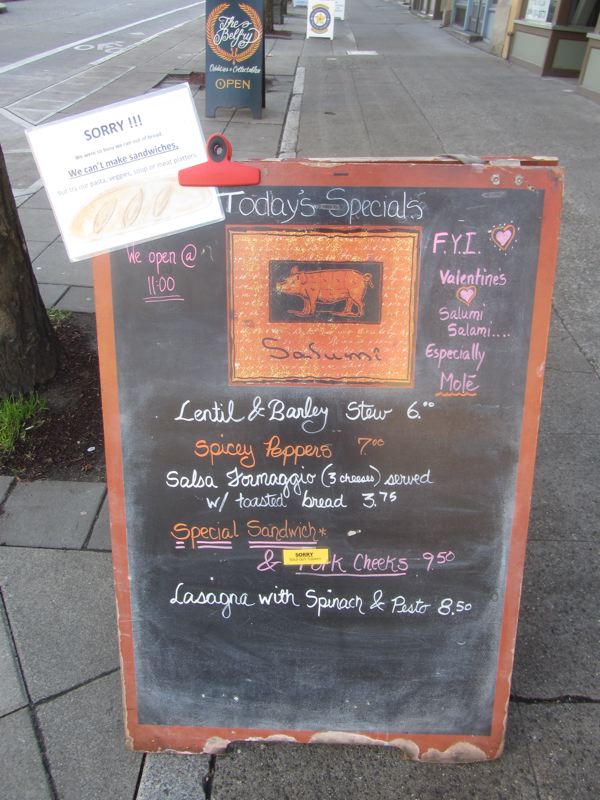 The
Belfry
Oddities & Collectables
OPEN
SORRY !!!
We were so busy we ran out of bread.
We can't make sandwiches,
But try our pasta, veggies, soup or meat platters.
Today's Specials
We open @
11:00
Salumi
F.Y.I.
Valentines
Salumi
Salami....
Especially
Molé
Lentil & Barley Stew 6.00
Spicey Peppers 7.00
Salsa Formaggio (3 cheeses) served
w/ toasted bread 3.75
Special Sandwich*
SORRY
& Pork Cheeks 9.50
Lasagna with Spinach & Pesto 8.50